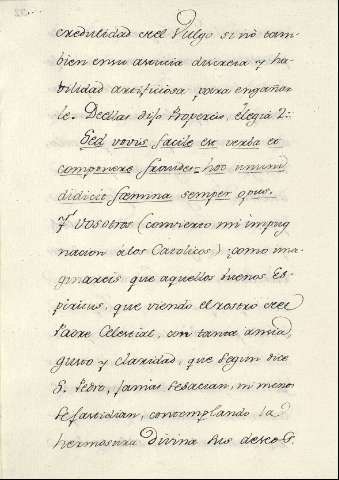 credulidad del Vulgo si nò tam-
bien en su astucia discreta y ha-
bilidad artificiosa para engañar-
le. De ellas dijo Propercio, elegia 2:
Sed vovis facile est verba et
componere fraudes = hoc unum
didicit fæmina semper opus.
Y vosotros (convierto mi impug
nacion à los Catolicos) ¿como ima
ginareis que aquellos buenos Es-
piritus, que viendo el rostro del
Padre Celestial, con tanta ansia,
gusto y claridad, que segun dice
S. Pedro, jamas se sacian, ni menos
se fastidian, contemplando la
hermosura Divina sus deseos.